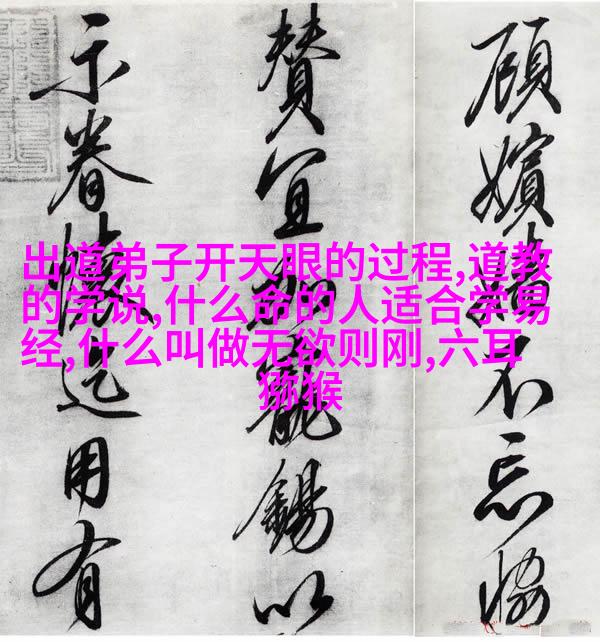 出道弟子开天眼的过程,道教
的学说,什么命的人适合学易
经,什么叫做无欲则刚,六耳
猕猴
顧嬪不忘恊
賛宜加寵錫以
示眷懷是用有